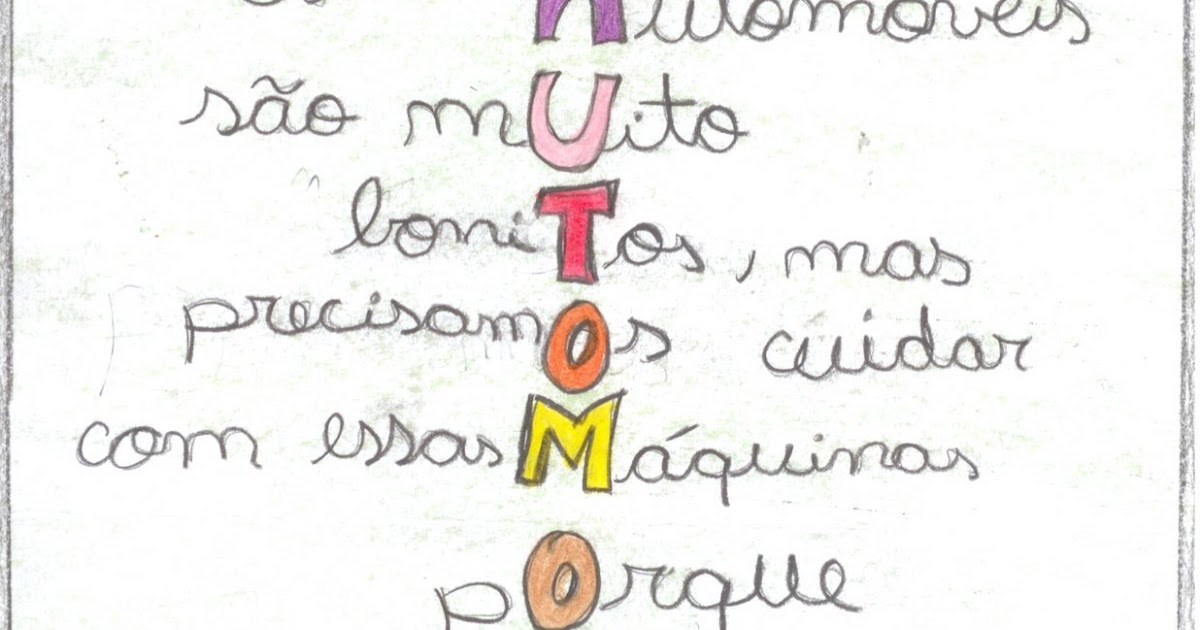 Automóveis
são mUito
boniTos, mas
precisamOs cuidar
com essas Máquinas
pOrque